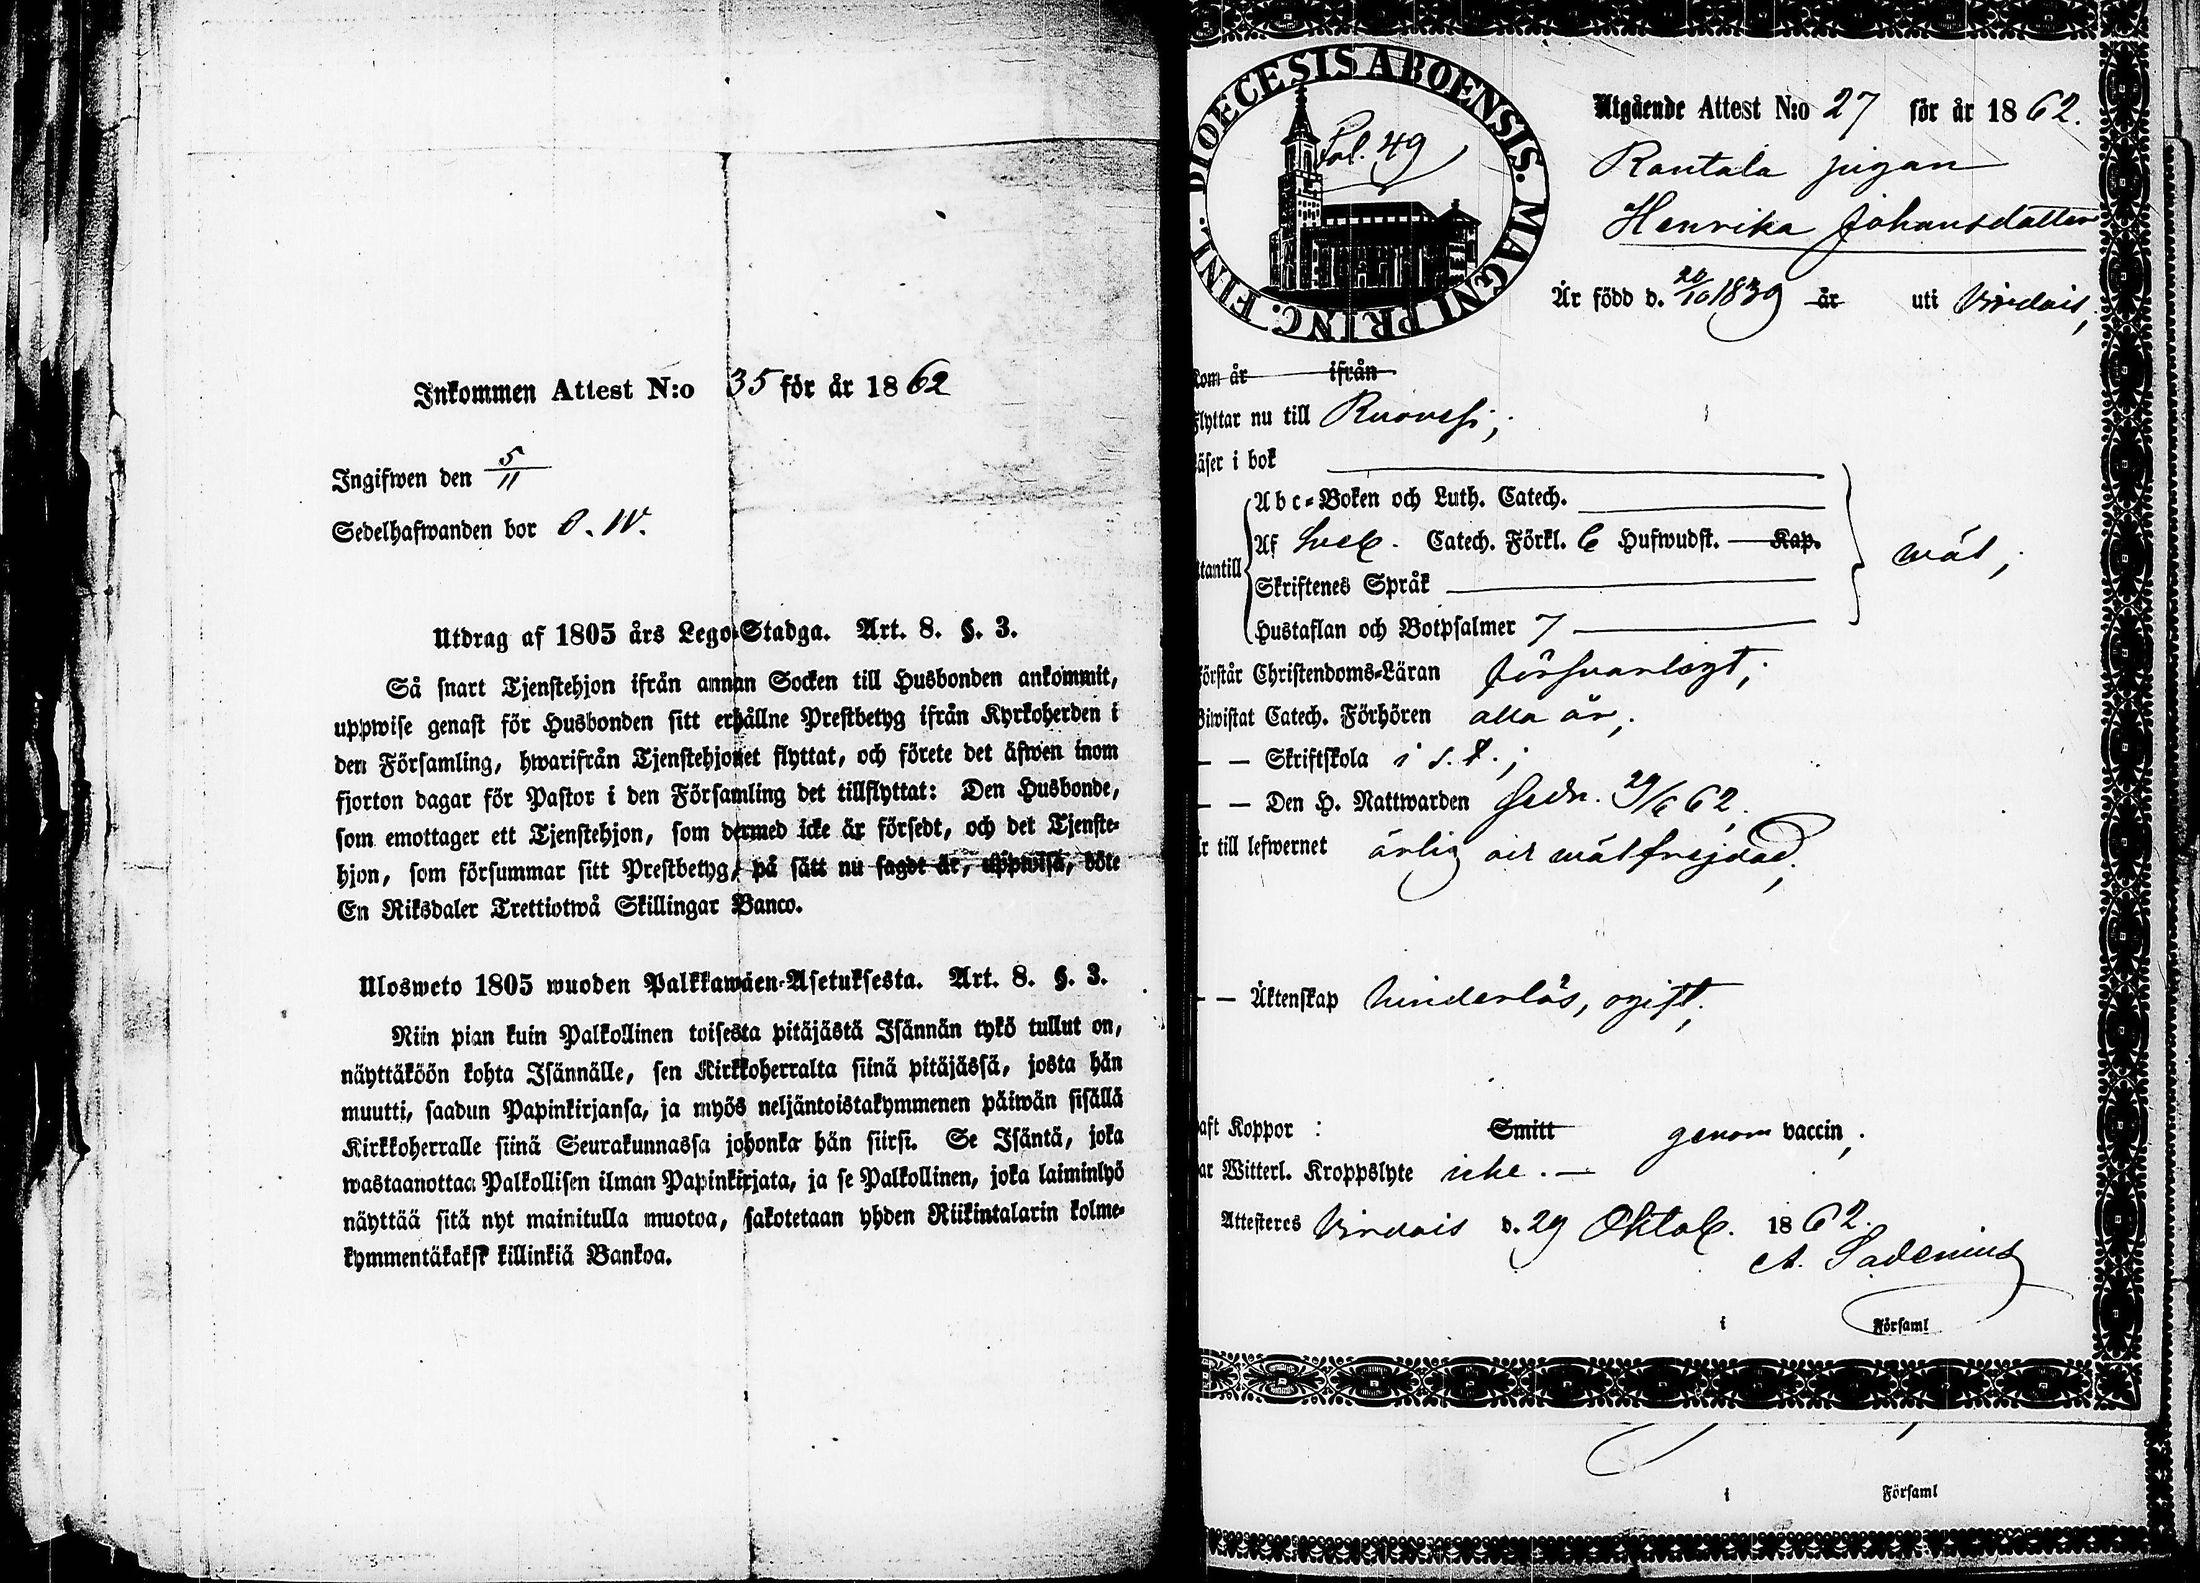 Inkommen Attest N:o 35 för år 1862
Ingifwen den 5/11
Sedelhafwanden bor O. W.
Utdrag af 1805 års Lego-Stadga. Art. 8. §. 3.
Så snart Tjenstehjon ifrån annan Socken till Husbonden ankommit,
uppwise genast för Husbonden sitt erhållne Prestbetyg ifrån Kyrkoherden i
den Församling, hwarifrån Tjenstehjonet flyttat, och förete det äfwen inom
fjorton dagar för Pastor i den Församling det tillflyttat: Den Husbonde,
som emottager ett Tjenstehjon, som dermed icke är försedt, och det Tjenste-
hjon, som försummar sitt Prestbetyg, på sätt nu sagdt är, uppwisa, böte
En Riksdaler Trettiotwå Skillingar Banco.
Ulosweto 1805 wuoden Palkkawäen-Asetuksesta. Art. 8. §. 3.
Niin pian kuin Palkollinen toisesta pitäjästä Isännän tykö tullut on,
näyttäköön kohta Isännälle, sen Kirkkoherralta siinä pitäjässä, josta hän
muutti, saadun Papinkirjansa, ja myös neljäntoistakymmenen päiwän sisällä
Kirkkoherralle siinä Seurakunnassa johonka hän siirsi. Se Isäntä, joka
wastaanottaa Palkollisen ilman Papinkirjata, ja se Palkollinen, joka laiminlyö
näyttää sitä nyt mainitulla muotoa, sakotetaan yhden Riikintalarin kolme-
kymmentäkaksk killinkiä Bankoa.
DIOECESIS ABOENSIS. MAGNI PRINC. FINL.
Fol. 49
Utgående Attest N:o 27 för år 1862.
Rantala pigan
Henrika Johansdotter
Är född d. 20/10 1839 år uti Virdois,
kom år ifrån
flyttar nu till Ruovesi,
äser i bok
Abc-Boken och Luth. Catech.
Af Catech. Förkl. 6 Hufwudst. Kap.
wäl,
tantill
Skriftenes Språk
Hustaflan och Botpsalmer 7
Förstår Christendoms-Läran försvarligt,
Biwistat Catech. Förhören alla år,
— — Skriftskola i s. t.;
— — Den H. Nattwarden sedn. 29/6 62,
är till lefwernet ärlig och wälfrejdad,
— — Äktenskap hinderlös, ogift,
aft Koppor : Smitt genom vaccin,
ar Witterl. Kroppslyte icke. —
Attesteres Virdois d. 29 Oktob. 1862.
A. Sadenius
i Församl
i Församl